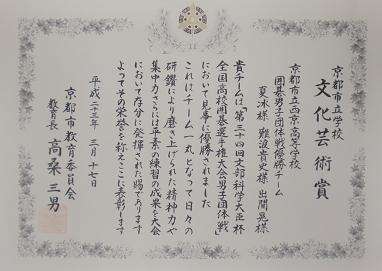 京都市立学校
文化芸術賞
京都市立西京高等学校
囲碁男子団体戦優勝チーム
夏冰様 難波貴史様 出間晃様
貴チームは「第三十四回文部科学大臣杯
全国高校囲碁選手権大会男子団体戦」
において見事に優勝されました
これはチーム一丸となって日々の
研鑽により磨き上げられた精神力や
集中力さらには平素の練習の成果を大会
において存分に発揮された賜であります
よってその栄誉を称えここに表彰します
平成二十三年 三月十七日
京都市教育委員会
教育長 高桑三男